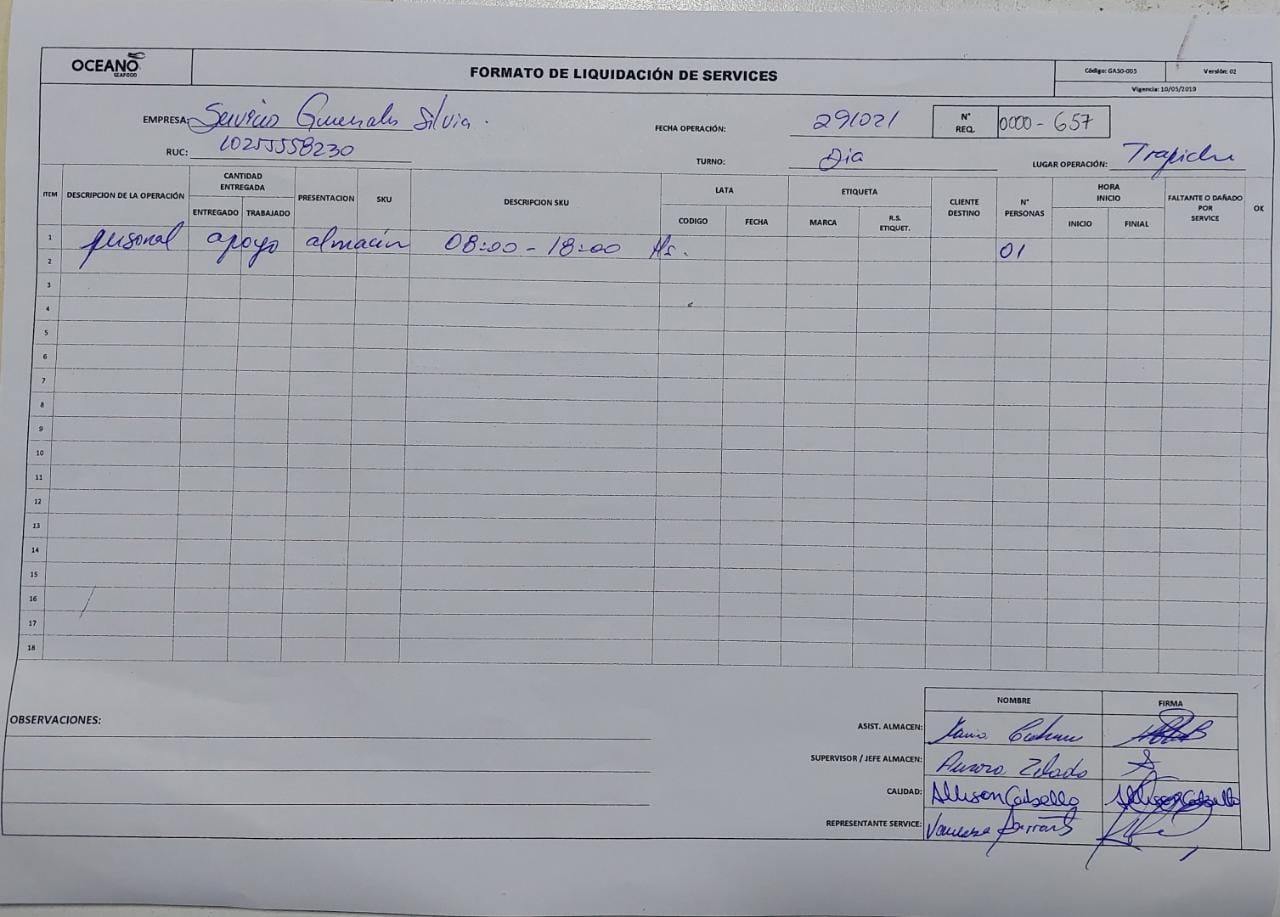 OCEANO
SEAFOOD
FORMATO DE LIQUIDACIÓN DE SERVICES
Código: GASO-005 Versión: 02
Vigencia: 10/05/2019
EMPRESA: Servicio Generales Silvia.
FECHA OPERACIÓN: 291021
N° REQ. 0000-657
RUC: 10255558230
TURNO: Dia
LUGAR OPERACIÓN: Trapiche
ITEM DESCRIPCION DE LA OPERACIÓN CANTIDAD ENTREGADA PRESENTACION SKU DESCRIPCION SKU LATA ETIQUETA CLIENTE DESTINO N° PERSONAS HORA INICIO FALTANTE O DAÑADO POR SERVICE OK
ENTREGADO TRABAJADO CODIGO FECHA MARCA R.S. ETIQUET. INICIO FINIAL
1 personal apoyo almacén 08:00 - 18:00 Hs. 01
2
3
4
5
6
7
8
9
10
11
12
13
14
15
16
17
18
NOMBRE FIRMA
OBSERVACIONES:
ASIST. ALMACEN:
SUPERVISOR / JEFE ALMACEN:
CALIDAD: Allison Cabello Allison Cabello
REPRESENTANTE SERVICE: Vanessa